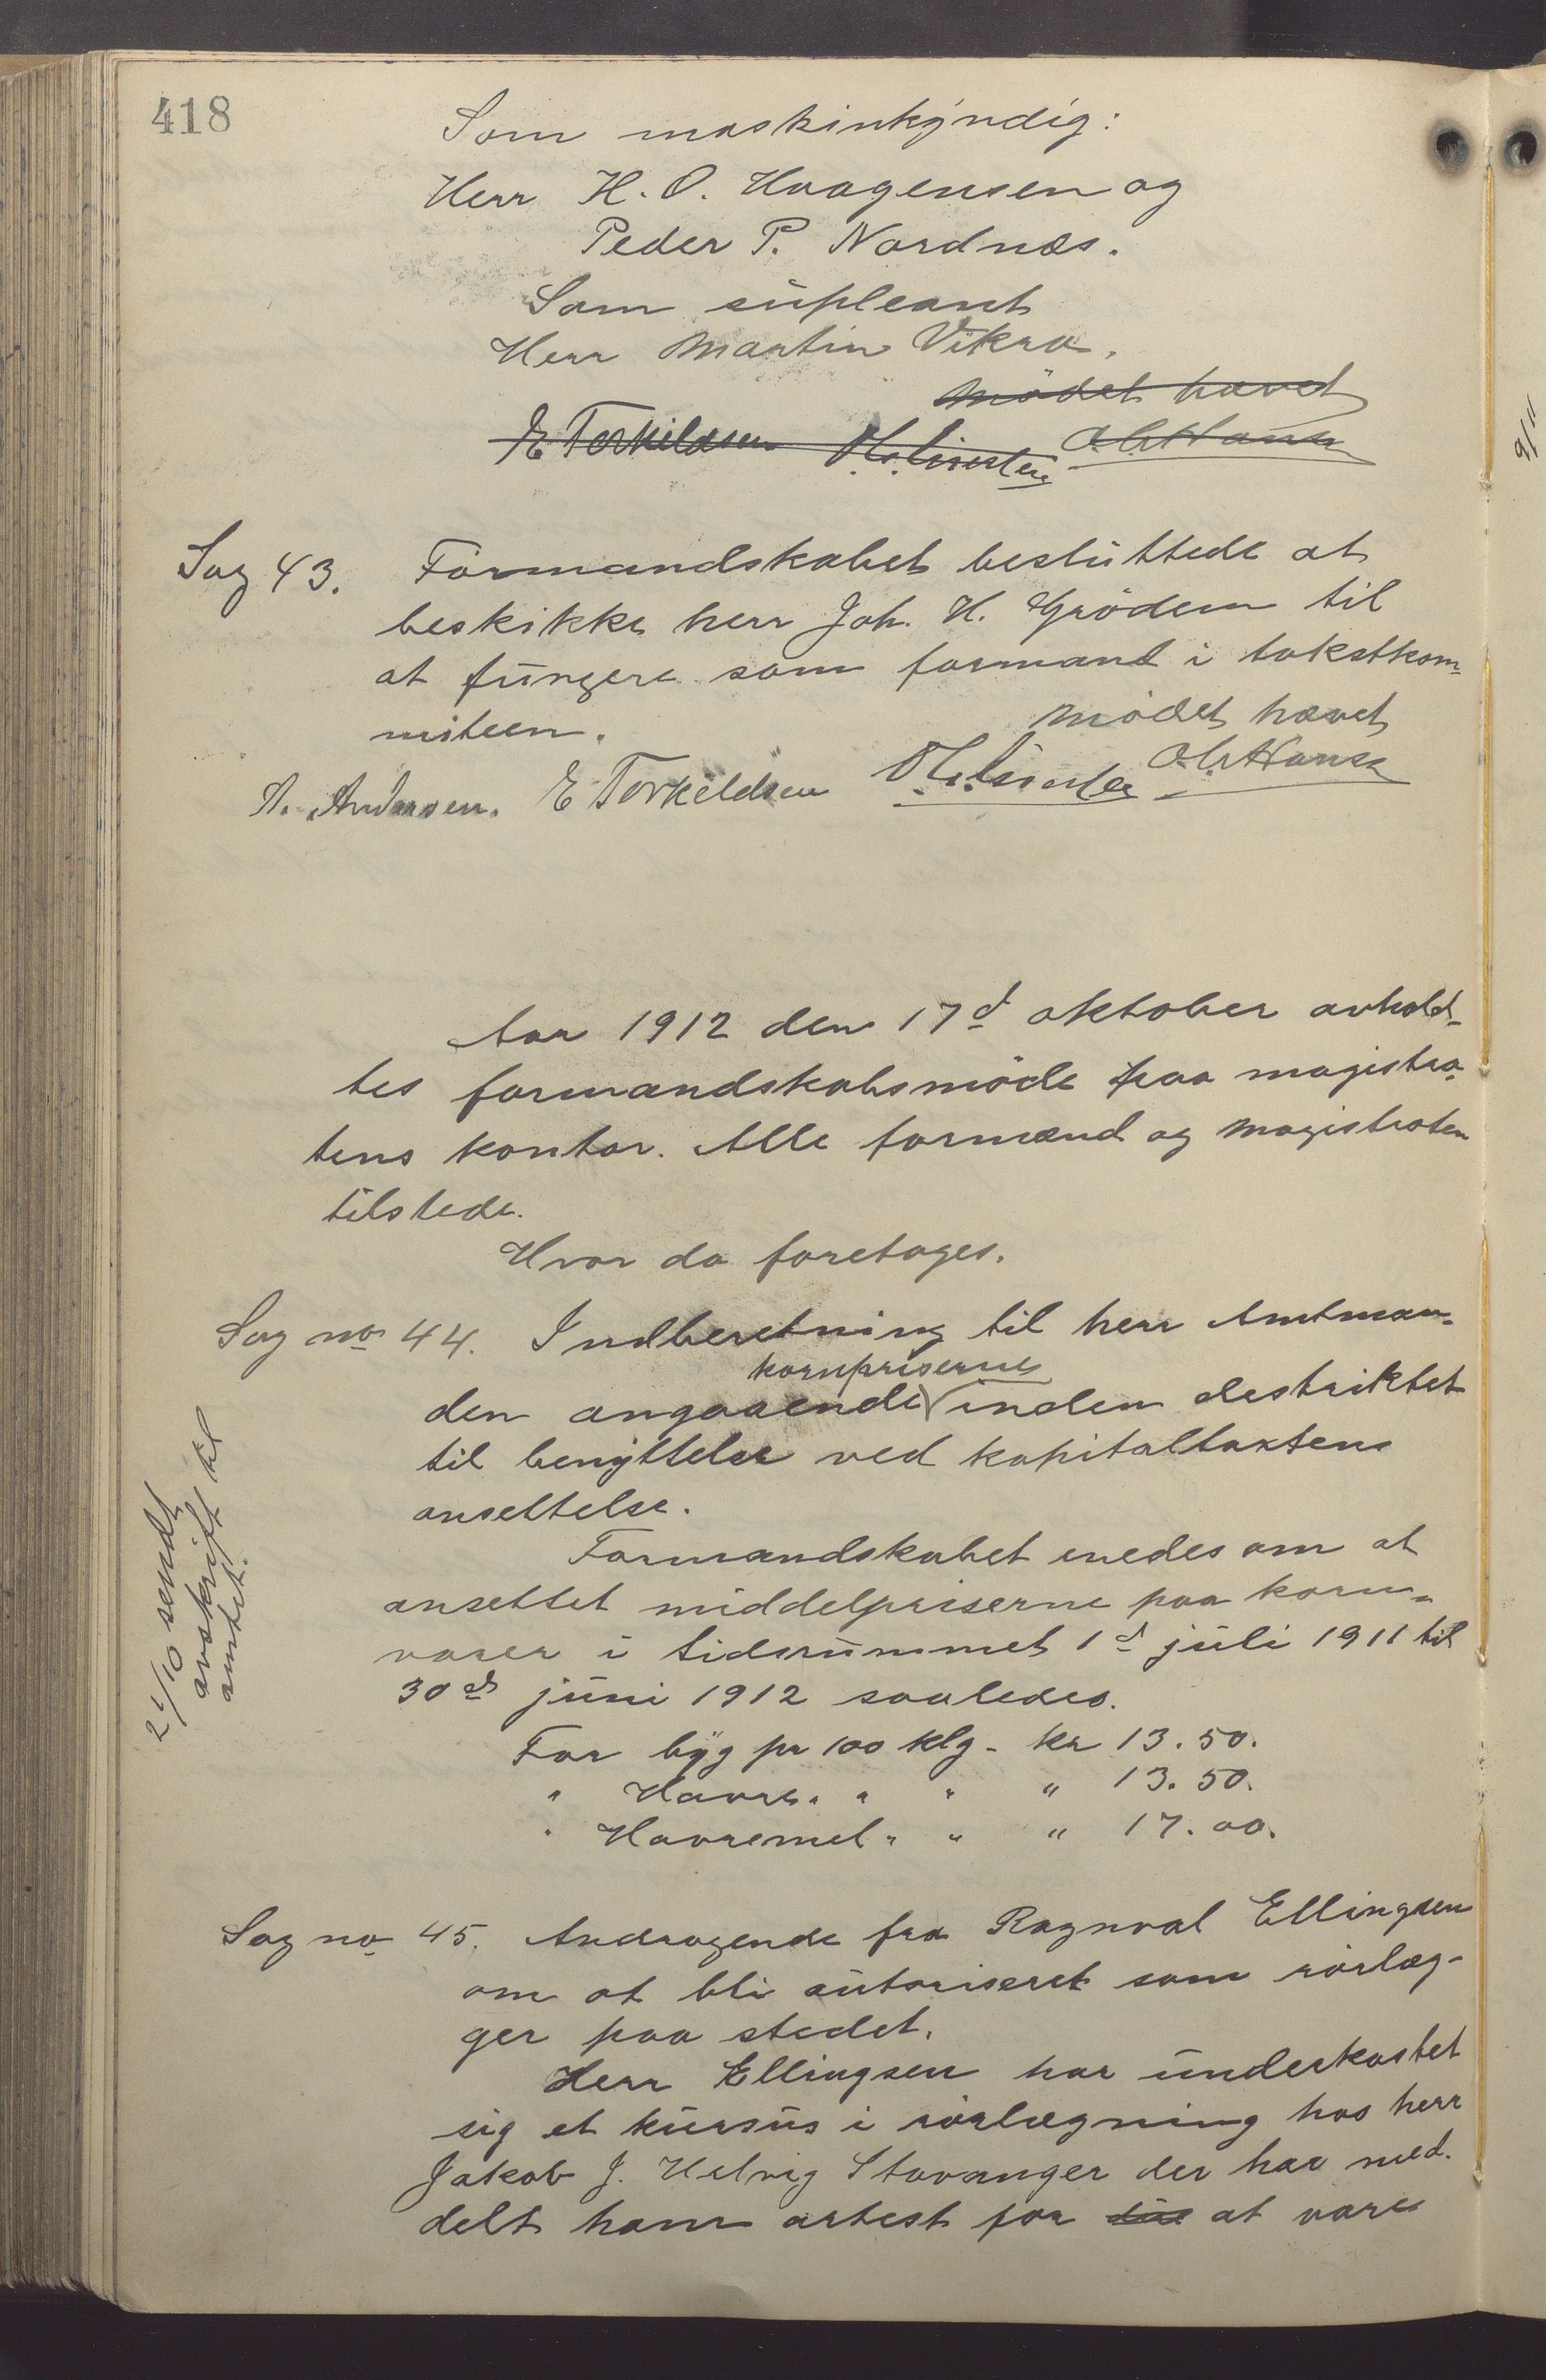 418
Som maskinkyndig:
Herr H. O. Haagensen og
Peder P. Nordnæs.
Som supleant
Herr Martin Vikra.
Mödet hævet
E Torkildsen
Sag 43. Formandskabet besluttede at
beskikke herr Joh. H. Grödem til
at fungere som formand i takstkom-
miteen.
Mödet hævet
A. Andersen. E Torkildsen
Aar 1912 den 17d oktober avhold-
tes formandskabsmöde paa magistra-
tens kontor. Alle formænd og Magistraten
tilstede.
Hvor da foretages.
Sag no 44. Indberetning til herr Amtman-
den angaaende kornpriserne inden destriktet
til benyttelse ved kapitaltakstens
ansettelse.
Formandskabet enedes om at
ansettet middelpriserne paa korn-
varer i tidsrummet 1d juli 1911 til
30d juni 1912 saaledes.
For byg pr 100 klg - kr 13.50.
" Havre " " " " 13.50.
" Havremel " " " 17.00.
21/10 sendt
avskrift til
amtet.
Sag no 45. Andragende fra Ragnval Ellingsen
om at bli autoriseret som rörlæg-
ger paa stedet.
Herr Ellingsen har underkastet
sig et kursus i rörlægning hos herr
Jakob J. Helvig Stavanger der har med-
delt ham artest for at være